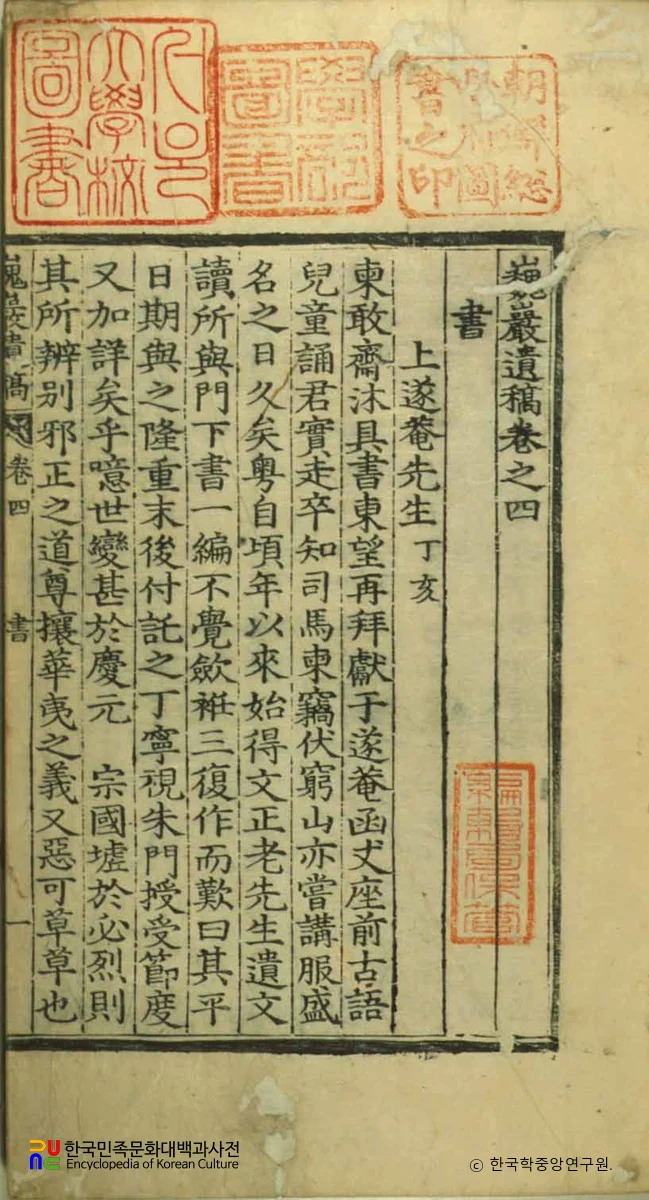 朝鮮總督府圖書之印
學部圖書
大學校圖書
巍巖遺稿卷之四
書
上遂菴先生 丁亥
柬敢齋沐具書東望再拜獻于遂菴函丈座前古語
兒童誦君實走卒知司馬柬竊伏窮山亦嘗講服盛
名之日久矣粤自頃年以來始得文正老先生遺文
讀所與門下書一編不覺歛袵三復作而歎曰其平
日期與之隆重末後付託之丁寧視朱門授受節度
又加詳矣乎噫世變甚於慶元 宗國墟於必烈則
其所辨别邪正之道尊攘華夷之義又惡可草草也
巍巖遺稿 卷四 書 一
한국민족문화대백과사전
Encyclopedia of Korean Culture
© 한국학중앙연구원.